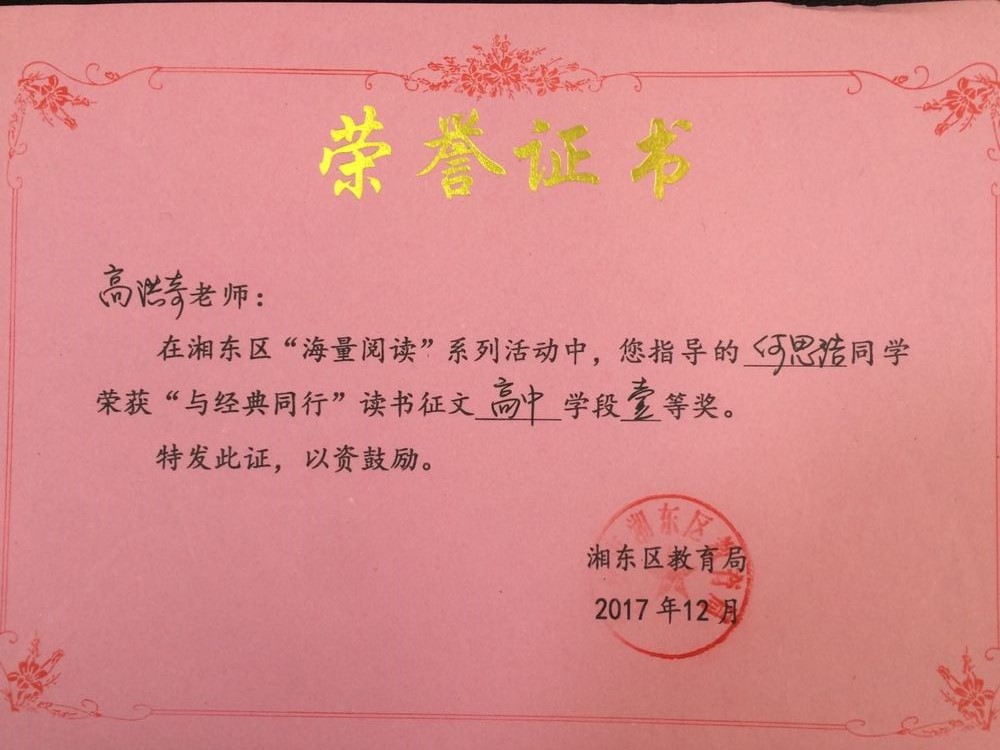 荣誉证书
高洪奇老师：
在湘东区“海量阅读”系列活动中，您指导的 何思浩同学
荣获“与经典同行”读书征文 高中 学段壹等奖。
特发此证，以资鼓励。
湘东区教育局
2017 年12 月
湘东区教育局